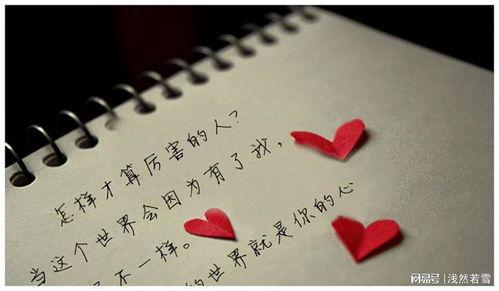 怎样才算厉害的人?
当这个世界会因为有了我,
不一样。
的世界就是你的心
网易号 | 浅然若雪